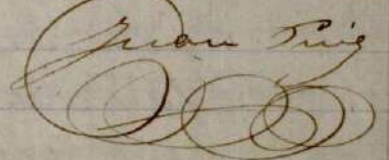 Juan Puig